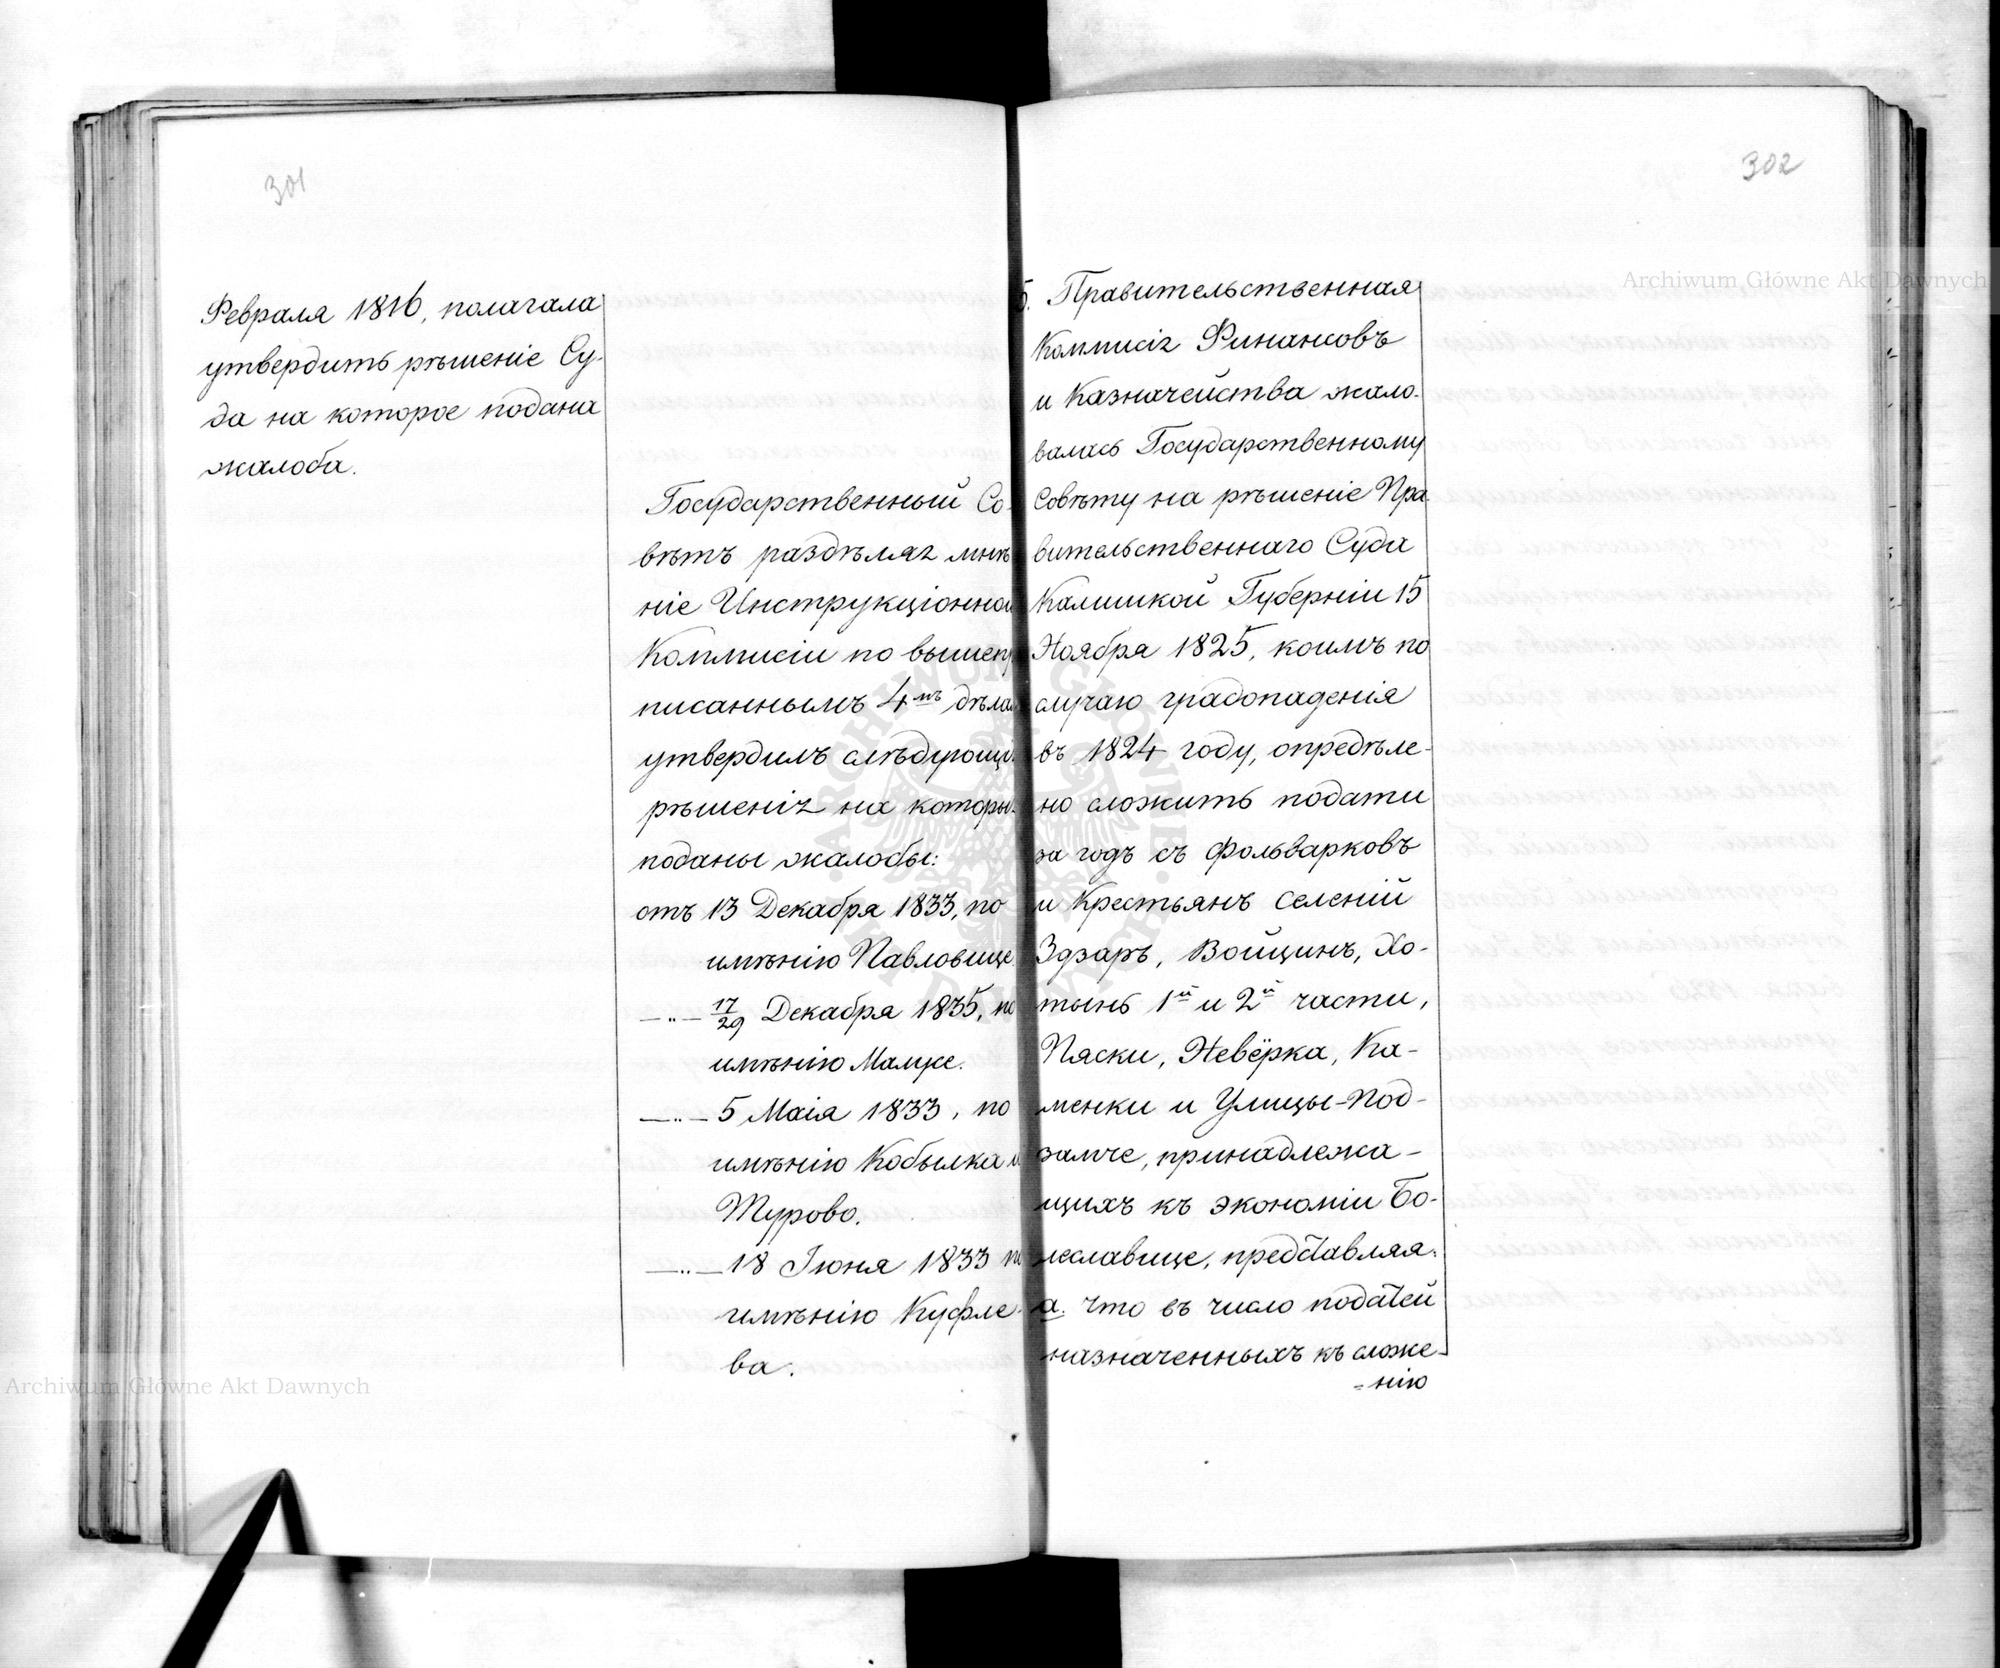 301
Февраля 1816, полагала
утвердить рѣшеніе Су-
да на которое подана
жалоба.
Государственный Со-
вѣтъ раздѣляя мнѣ
ніе Инструкціонной
Коммисіи по вышепр
писаннымъ 4мъ дѣлам
утвердилъ слѣдующі
рѣшенія на которы
поданы жалобы:
отъ 13 Декабря 1833, по
имѣнію Павловице
—„— 17/29 Декабря 1835, по
имѣнію
—„— 5 Маія 1833, по
имѣнію Кобылка и
Турово.
—„— 18 Іюня 1833 по
имѣнію Куфле-
ва.
302
5. Правительственная
Коммисія Финансовъ
и Казначейства жало-
валась Государственному
Совѣту на рѣшеніе Пра-
вительственнаго Суда
Калишкой Губерніи 15
Ноября 1825, коимъ по
случаю градопаденія
въ 1824 году, опредѣле-
но сложить подати
за годъ съ фольварковъ
и Крестьянъ селеній
Здзаръ, Войцинъ, Хо-
тынь 1й и 2й части,
Пяски, Невёрка, Ка-
менки и Улицы-Под-
замче, принадлежа-
щихъ къ экономіи Бо-
леславице, представляя:
а. что въ число податей
назначенныхъ къ сложе-
=нію
Archiwum Główne Akt Dawnych
Archiwum Główne Akt Dawnych
ARCHIWUM GŁÓWNE AKT DAWNYCH